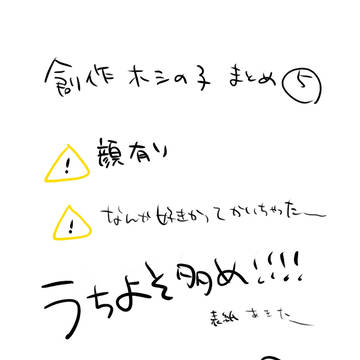 創作 ホシの子 まとめ ⑤
! 顔有り
! なんか好きかってかいちゃったー
うちよそ多め!!!!
表紙あきたー